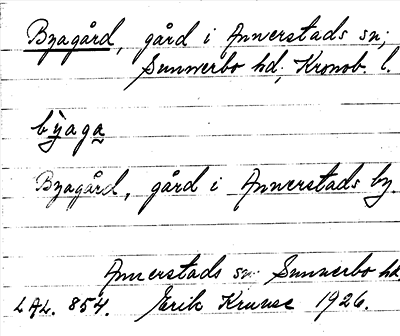 Byagård, gård i Annerstads sn;
Sunnerbo hd; Kronob. l.
bỳaga
Byagård, gård i Annerstads by.
Annerstads sn Sunnerbo hd
LAL. 854. Erik Kruuse 1926.